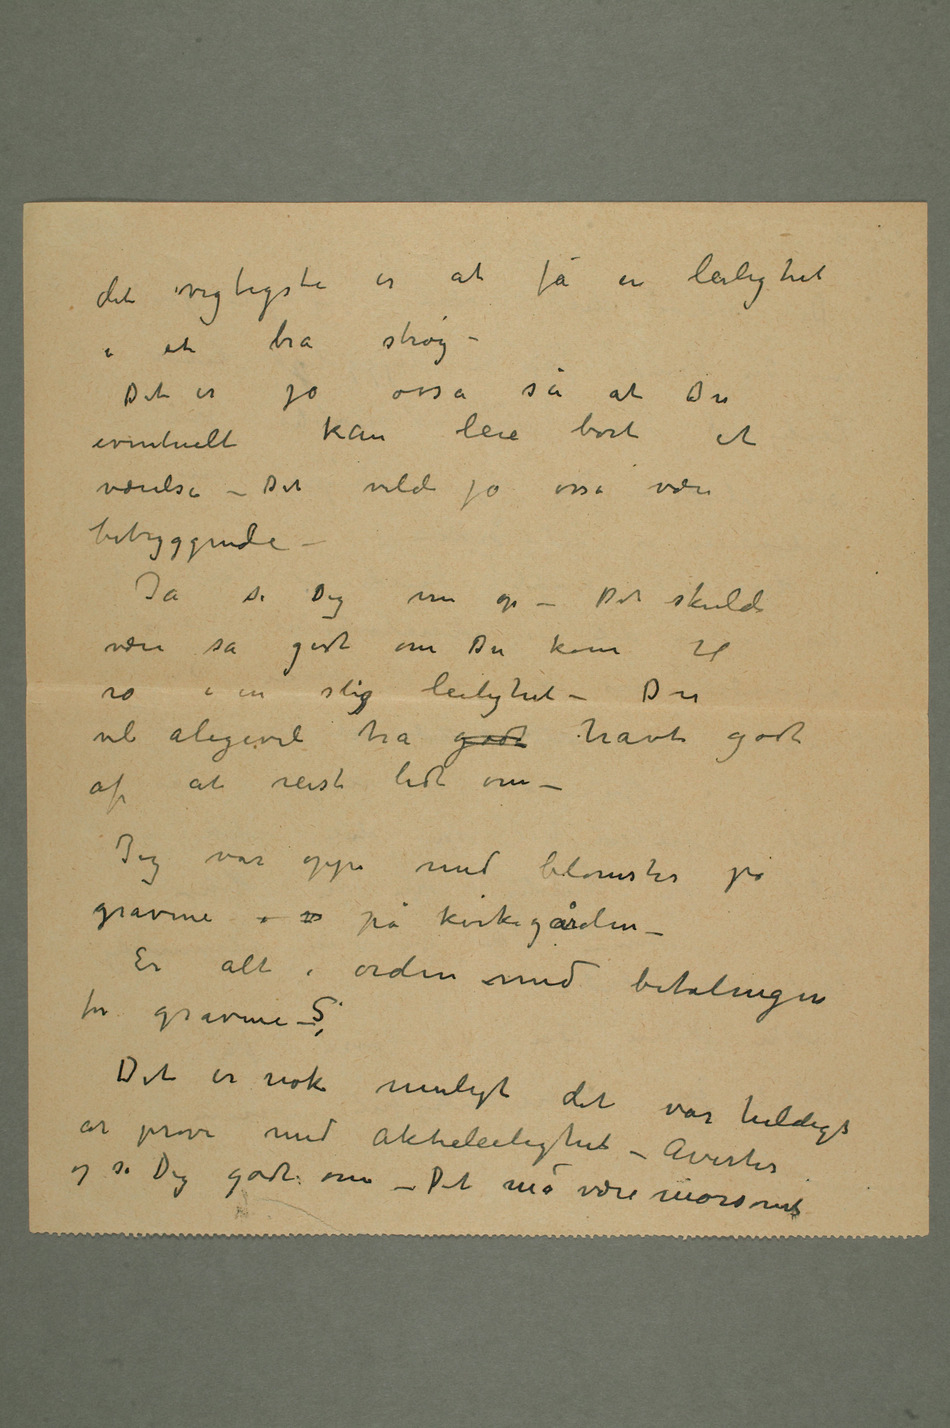 det vigtigste er at få en leilighet
i et bra strøg –
Det er jo ossa så at Du
eventuelt kan leie bort et
værelse – Det vilde jo osså være
betryggende –
Ja se Dig nu op – Det skulde
være sa godt om Du kom til
ro i en slig leilighet – Du
vil alegevel ha godt havt godt
af at reist lidt om –
Jeg var oppe med blomster på
gravene på kirkegården –
Er alt i orden med betalingen
for gravene –
Det er nok muligt det var heldigt
at prøve med aktieleilighet – Averter
og se Dig godt om – Det må være morsomt